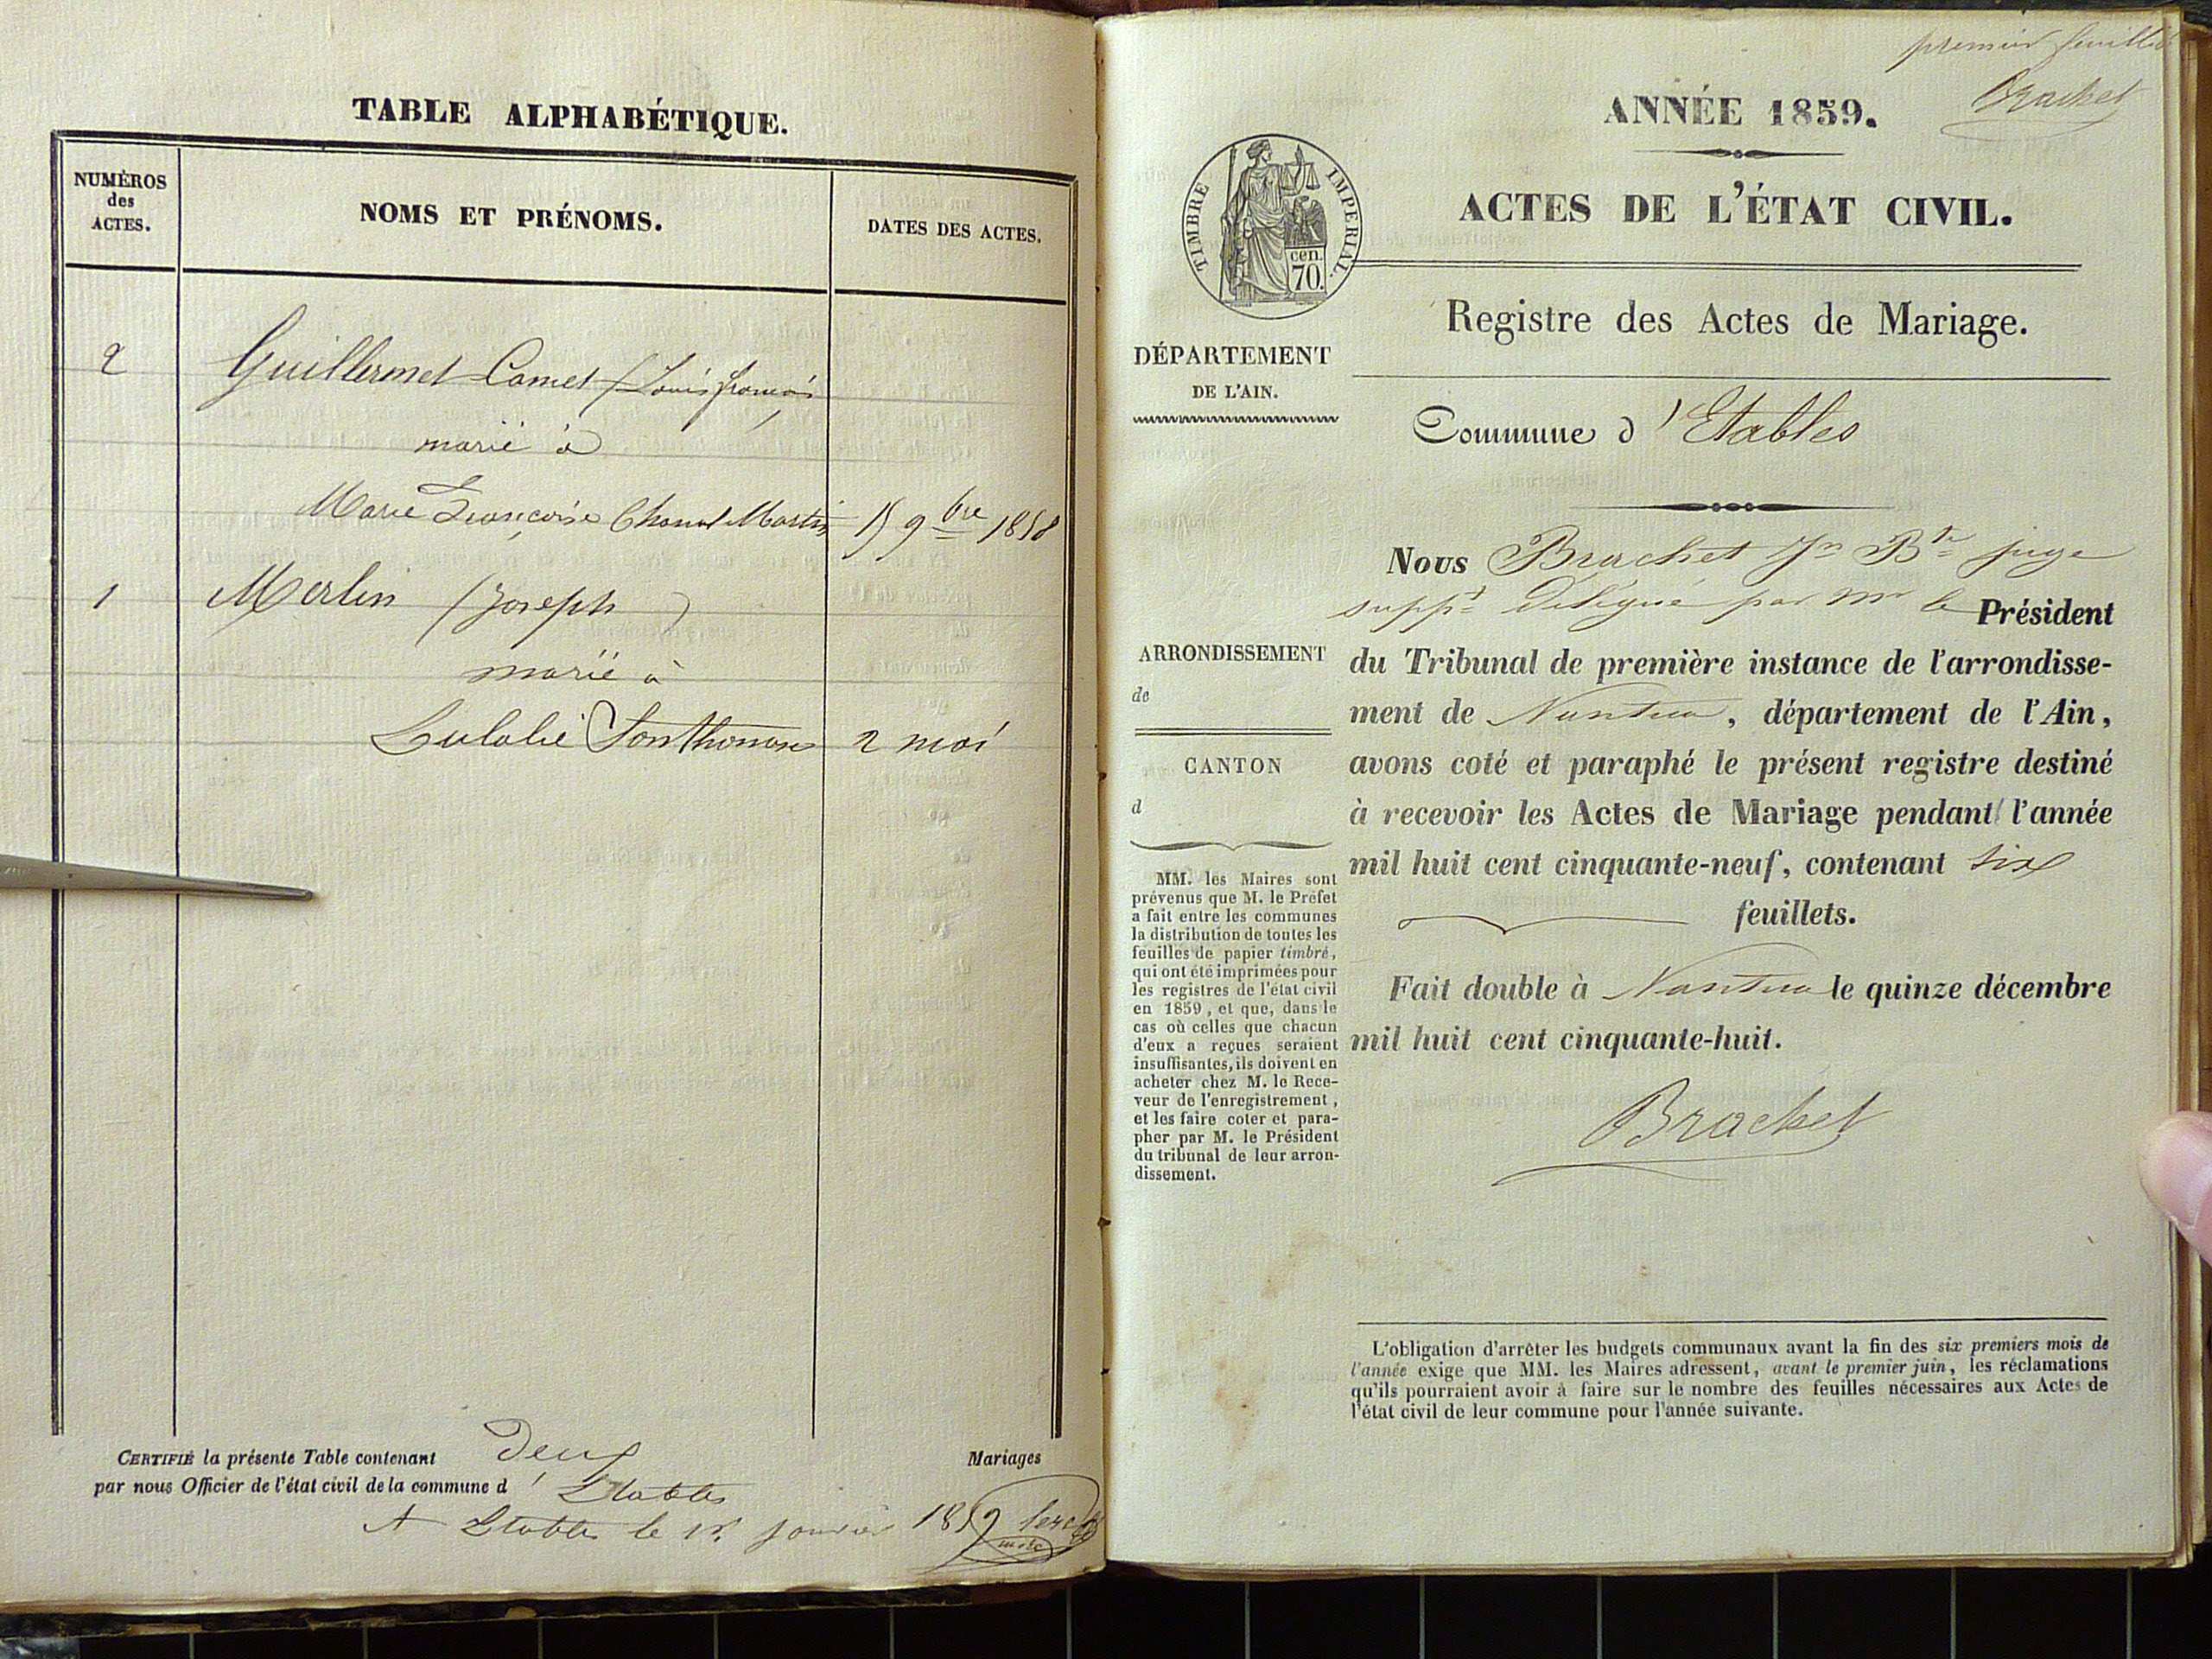 TABLE ALPHABÉTIQUE.
NUMÉROS
des
ACTES.
NOMS ET PRÉNOMS.
DATES DES ACTES.
2 Guillermet Comet (Louis françois
marié à
Marie Françoise Chanel Martin 15 9bre 1858
1 Merlin (Joseph)
marié à
Eulalie Sonthonnax 2 mai
CERTIFIÉ la présente Table contenant Deux Mariages
par nous Officier de l'état civil de la commune d'Etables
A Etables le 1r. janvier 1859
premier feuillet
Brachet
ANNÉE 1859.
ACTES DE L'ÉTAT CIVIL.
TIMBRE IMPERIAL.
cen.
70.
Registre des Actes de Mariage.
DÉPARTEMENT
DE L'AIN.
Commune d'Etables
Nous Brachet Jn Bte juge
suppt délégué par Mr le Président
du Tribunal de première instance de l'arrondisse-
ment de Nantua, département de l'Ain,
avons coté et paraphé le présent registre destiné
à recevoir les Actes de Mariage pendant l'année
mil huit cent cinquante-neuf, contenant six
feuillets.
Fait double à Nantua le quinze décembre
mil huit cent cinquante-huit.
Brachet
ARRONDISSEMENT
de
CANTON
d
MM. les Maires sont
prévenus que M. le Préfet
a fait entre les communes
la distribution de toutes les
feuilles de papier timbré,
qui ont été imprimées pour
les registres de l'état civil
en 1859, et que, dans le
cas où celles que chacun
d'eux a reçues seraient
insuffisantes, ils doivent en
acheter chez M. le Rece-
veur de l'enregistrement,
et les faire coter et para-
pher par M. le Président
du tribunal de leur arron-
dissement.
L'obligation d'arrêter les budgets communaux avant la fin des six premiers mois de
l'année exige que MM. les Maires adressent, avant le premier juin, les réclamations
qu'ils pourraient avoir à faire sur le nombre des feuilles nécessaires aux Actes de
l'état civil de leur commune pour l'année suivante.